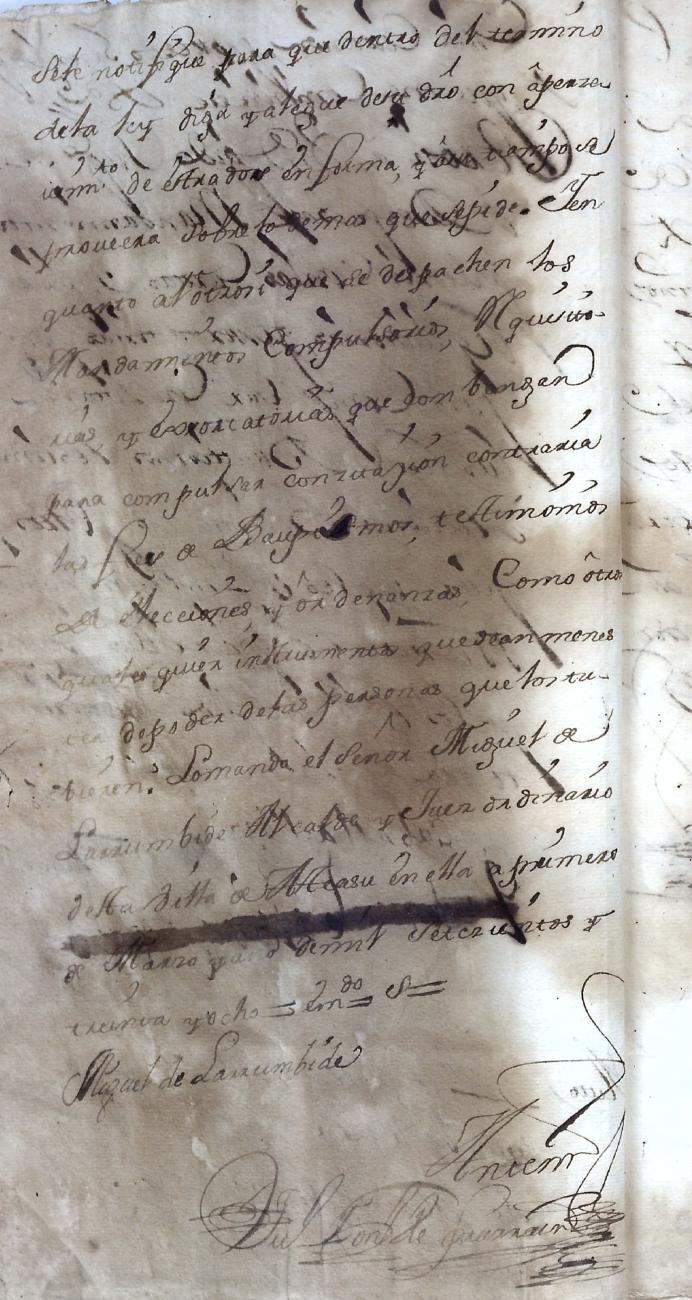 Sele notifique para que dentro del termino
dela ley diga y alegue desu dro. con aperze
uimto. de estrados en forma, q̃ a su tiempo se
proueera sobre lo demas que sepide. Jen
quanto al otrosi que se despachen los
Mandamientos Compulsorios, Rquisito-
rias, y exortatorias que combengan
para compulsar con zitazion contraria
las fees de Baupttismos, testimonios
de elecciones, y ordenanzas, Como otros
quales quier instrumentos que sean menes
ter de poder delas personas que los tu-
bieren. Lomanda el señor Miguel de
Larrumbide Alcalde y Juez ordinario
desta Villa de Alcasu en ella a primero
de Marzo de mil setezientos y
treinta y ocho = emdo = S =
Miguel de Larrumbide
Antemi